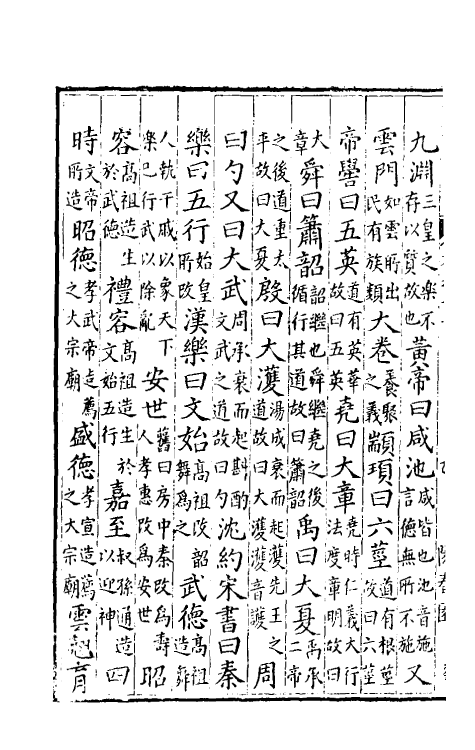 九淵三皇之樂不存以質故也黃帝曰咸池咸皆也池音施言德無所不施又
雲門如雲所出民有族類大卷養聚之義顓頊曰六莖道有根莖故曰六莖
帝嚳曰五英道有英華故曰五英堯曰大章堯時仁義大行法度章明故曰
大章舜曰簫韶韶繼也舜繼堯之後循行其道故曰簫韶禹曰大夏禹承二帝
之後道重太平故曰大夏殷曰大濩湯成衰而起濩先王之道故曰大濩濩音護周
曰勺又曰大武周承衰而起斟酌文武之道故曰勺沈約宋書曰秦
樂曰五行始皇所改漢樂曰文始高祖改韶舞為之武德高祖造舞
人執干戚以象天下樂已行武以除亂安世舊曰房中秦改為壽人孝惠改為安世昭
容高祖造生於武德禮容高祖造生於文始五行嘉至叔孫通造以迎神四
時文帝所造昭德孝武帝造薦之大宗廟盛德孝宣造薦之大宗廟雲翹育